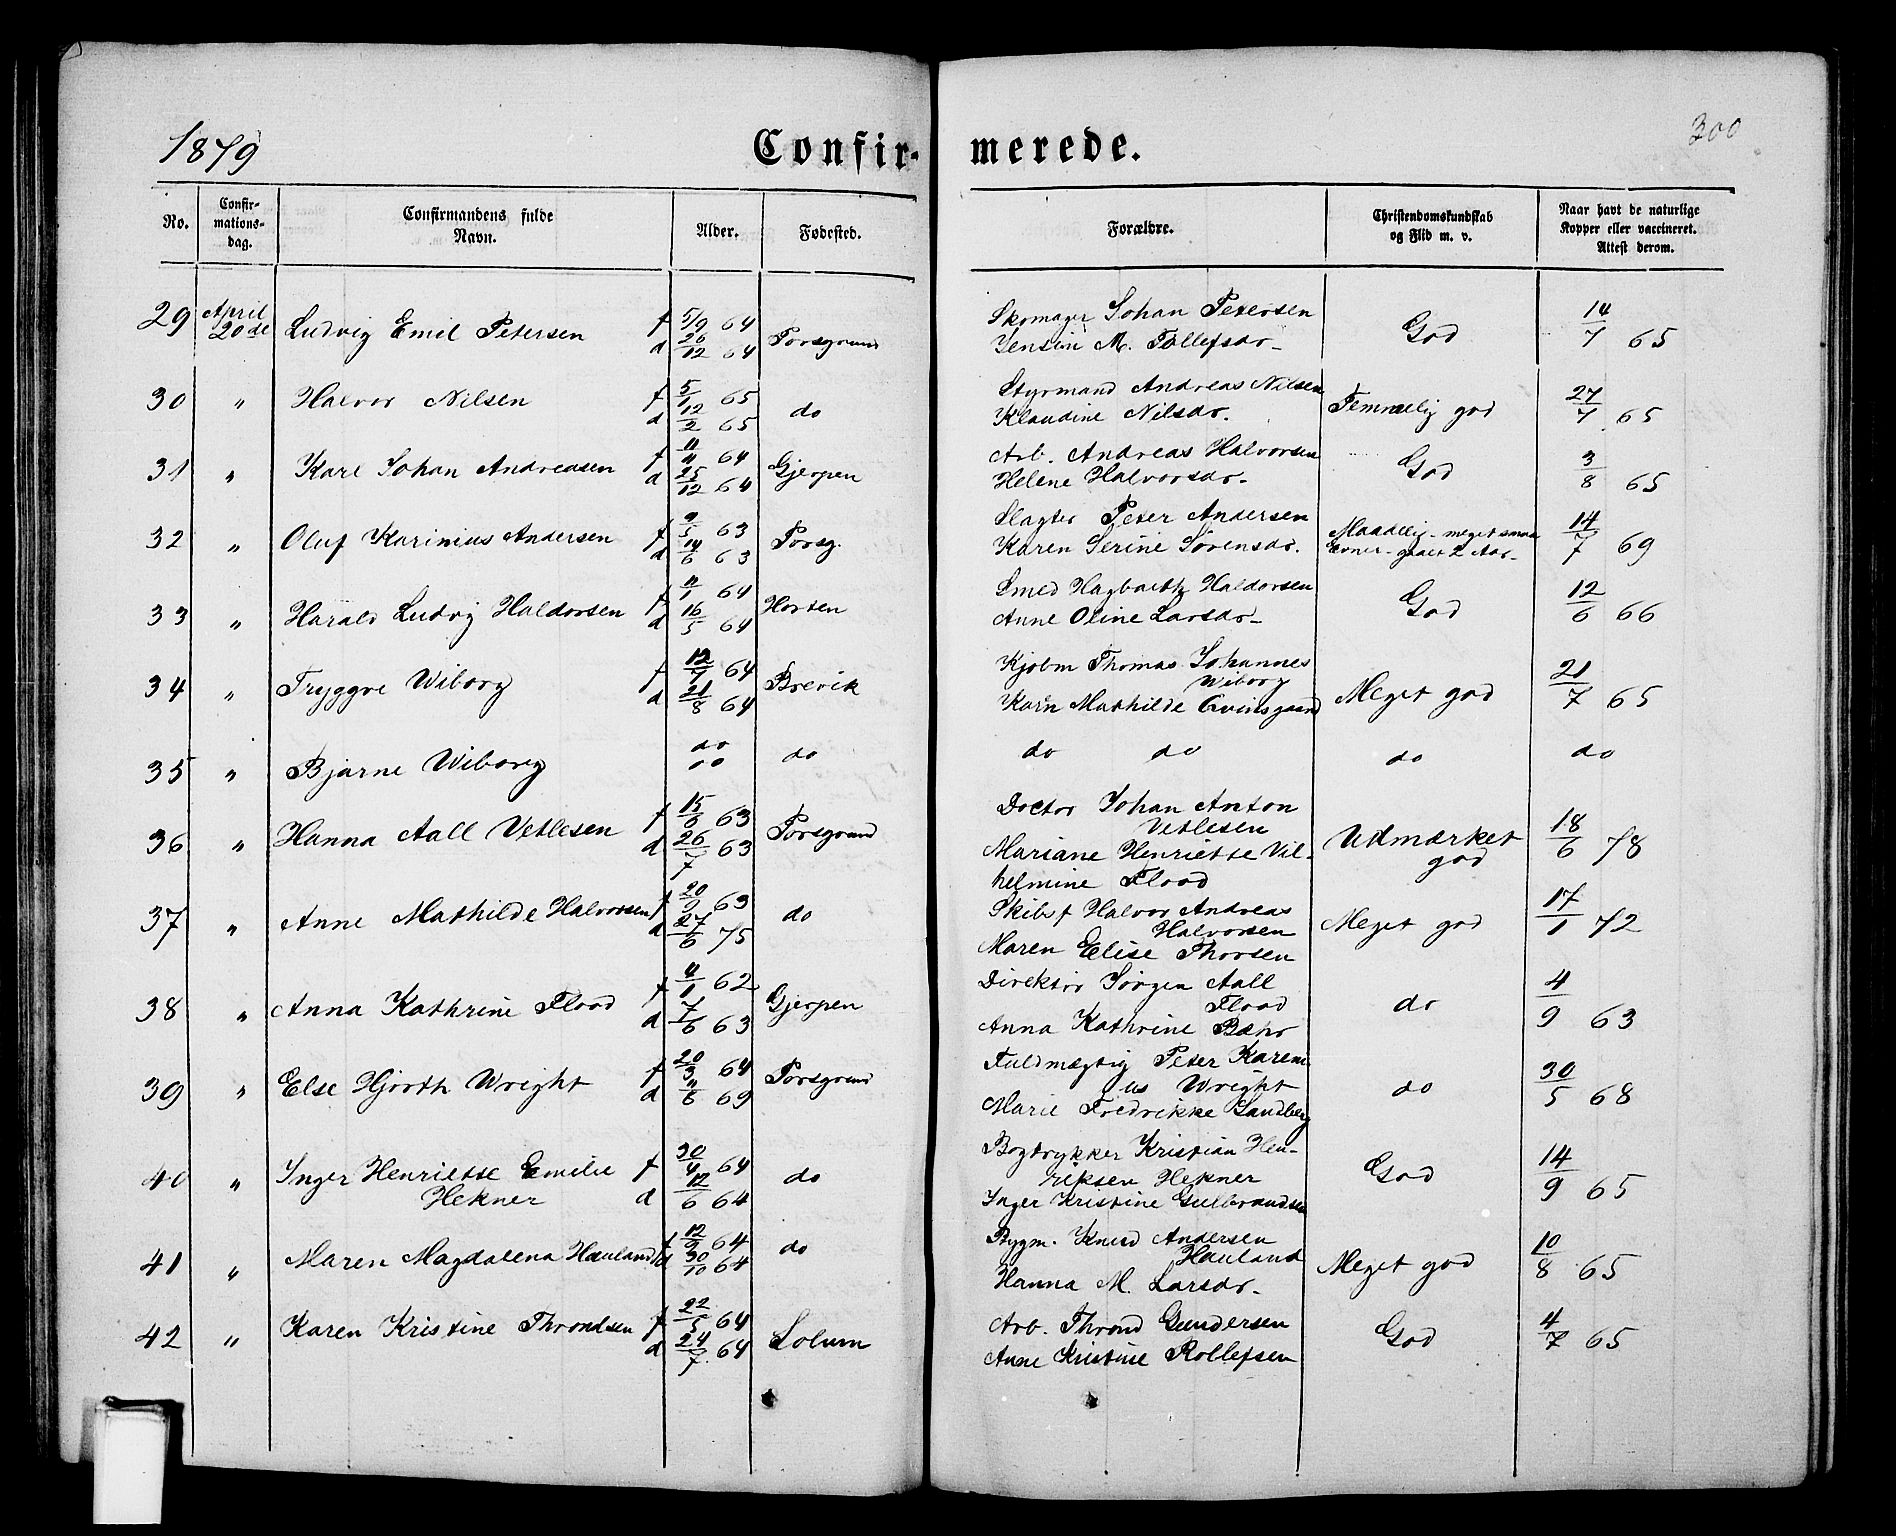 1879 Confir- merede. 300
No. Confir-mations-dag. Confirmandens fulde Navn. Alder. Fødested. Forældre. Christendomskundskab og Flid m. v. Naar havt de naturlige Kopper eller vaccineret. Attest derom.
29 April 20de Ludvig Emil Petersen f 5/9 64 Porsgrund Skomager Johan Petersen God 14/7 65
d 26/12 64 Jensine M. Tollefsdr.
30 " Halvor Nilsen f 5/1 65 do Styrmand Andreas Nilsen Temmelig god 27/7 65
d 12/2 65 Klaudine Nilsdr.
31 " Karl Johan Andreasen f 11/11 64 Gjerpen Arb. Andreas Halvorsen God 3/8 65
d 25/12 64 Helene Halvorsdr.
32 " Oluf Karinius Andersen f 9/5 63 Porsg. Slagter Peter Andersen Maadelig - meget smaa 14/7 69
d 14/6 63 Karen Serine Sørensdr. Evner - gaaet 2 Aar -
33 " Harald Ludvig Haldorsen f 11/1 64 Horten Smed Hagbarth Haldorsen God 12/6 66
d 16/5 64 Anne Oline Larsdr.
34 " Tryggve Wiborg f 12/7 64 Brevik Kjøbm Thomas Johannes Meget god 21/7 65
Wiborg
d 21/8 64 Karn Mathilde
35 " Bjarne Wiborg do do do do do do do
36 " Hanna Aall Vetlesen f 15/6 63 Porsgrund Doctor Johan Anton Udmærket god 18/6 78
Vetlesen
d 26/7 63 Mariane Henriette Vil-
helmine Flood
37 " Anne Mathilde Halvorsen f 20/9 63 do Skibsf Halvor Andreas Meget god 17/1 72
Halvorsen
d 27/6 75 Maren Elise Thorsen
38 " Anna Kathrine Flood f 11/1 62 Gjerpen Direktør Jørgen Aall do 4/9 63
Flood
d 7/6 63 Anna Kathrine Bæhr
39 " Else Hjorth Wright f 20/3 64 Porsgrund Fuldmægtig Peter Kareni do 30/5 68
us Wright
d 11/6 69 Marie Fredrikke Sandberg
40 " Inger Henriette Emilie f 30/4 64 do Bogtrykker Kristian Hen- God 14/9 65
Hekner d 12/6 64 riksen Hekner
Inger Kristine Gulbrandsen
41 " Maren Magdalena Hauland f 12/9 64 do Bygm. Knud Andersen Meget god 10/8 65
Hauland
d 30/10 64 Hanna M. Larsdr.
42 " Karen Kristine Throndsen f 22/5 64 Solum Arb. Thrond Gundersen God 4/7 65
d 24/7 64 Anne Kristine Rollefsen